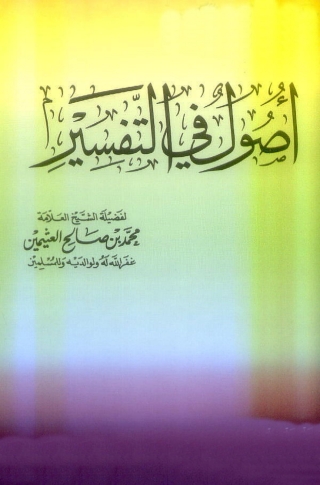 أصول في التفسير
لفضيلة الشيخ العلامة
محمد بن صالح العثيمين
غفر الله له ولوالديه وللمسلمين